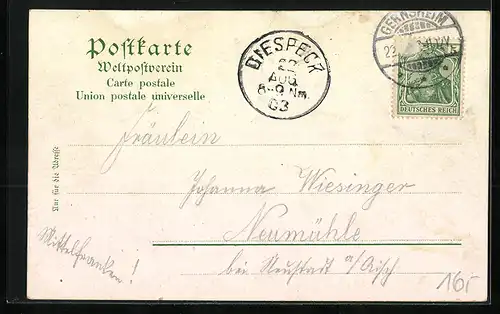 Postkarte
Weltpostverein
Carte postale
Union postale universelle
DIESPECK
22
AUG
8-9 Nm.
03
GERNSHEIM
DEUTSCHES REICH
Nur für die Adresse
Fräulein
Johanna Wiesinger
Neumühle
bei Neustadt a/Aisch
Mittelfranken!
16.-